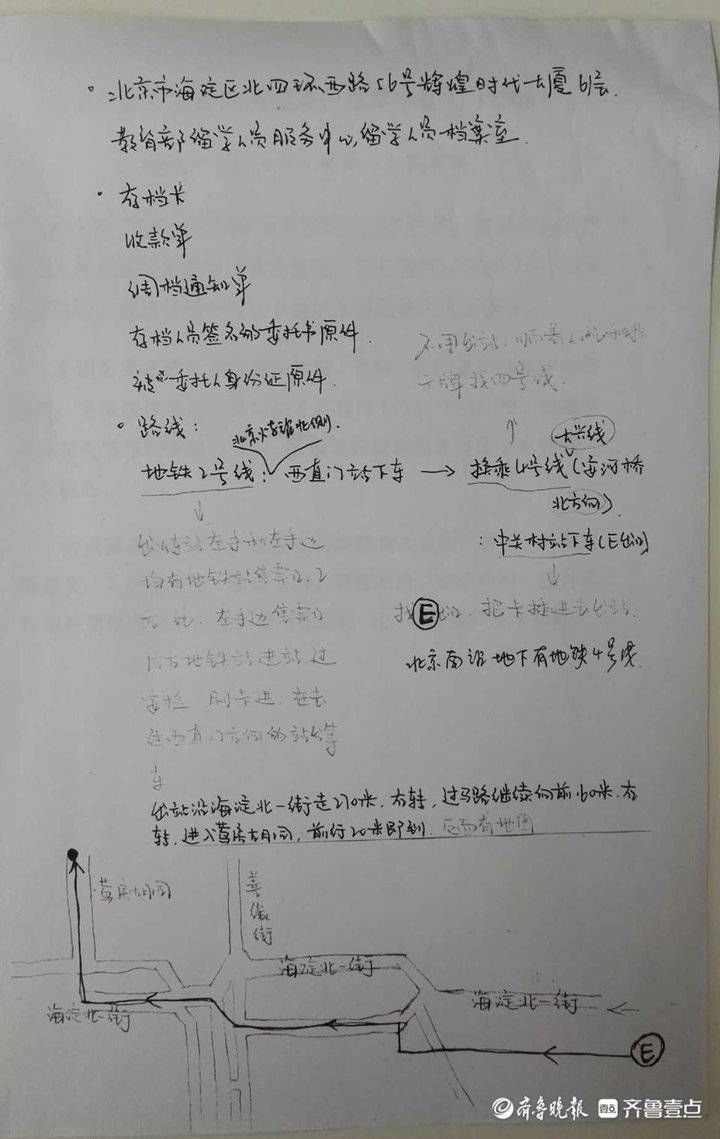 · 北京市海淀区北四环西路56号辉煌时代大厦6层.
教育部留学人员服务中心,留学人员档案室.
· 存档卡
收款单
调档通知单
存档人员签名的委托书原件.
被委托人身份证原件.
不用出站,顺着
牌找四号线.
· 路线:
北京火车站北侧.
大兴线
地铁2号线: 西直门站下车 → 换乘4号线(安河桥
北方向)
: 中关村站下车(E出口)
出站左手和左手边
均有地铁站售票口,2
元/张. 左手边售票口
地铁站进站过
安检 刷卡进,在去
往西直门方向的站台等
车
找E出口, 把卡插进去出站.
北京南站地下有地铁4号线.
出站沿海淀北一街走270米,右转,过马路继续向前160米.右
转,进入菅房胡同,前行20米即到.反面有地图
房胡同
善缘街
海淀北一街
海淀北一街
海淀北一街
E
齐鲁晚报 齐鲁壹点